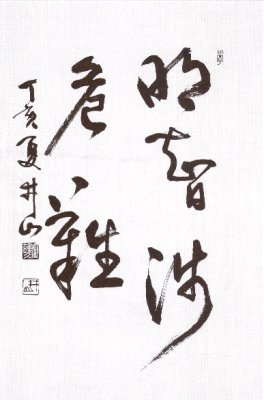 明智涉
危難
丁亥夏井山